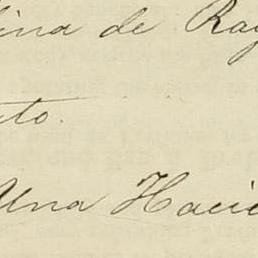 lina de Ray
to.
Una Hacie